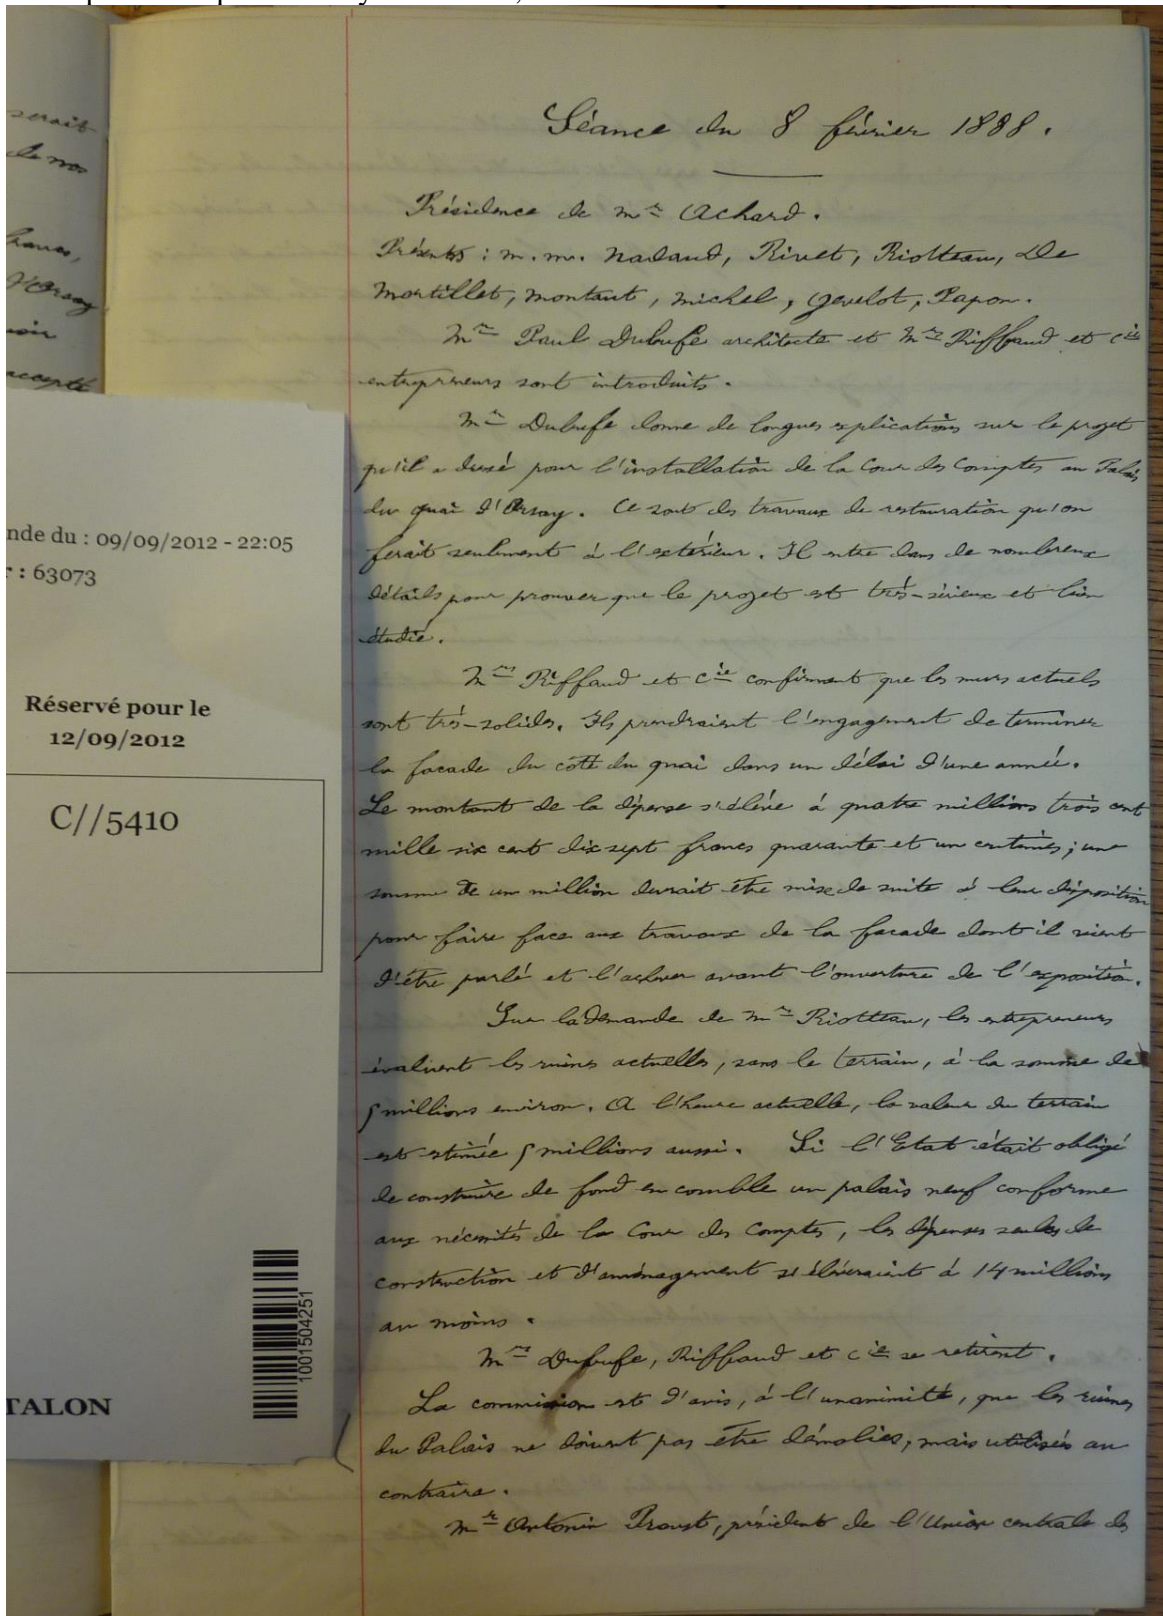 serait
de nos
d'Orsay
accepté
nde du : 09/09/2012 - 22:05
r : 63073
Réservé pour le
12/09/2012
C//5410
1001504251
TALON
Séance du 8 février 1888.
Présidence de Mr Achard.
Présents : M.M. Nadaud, Rivet, Riotteau, De
Mortillet, Montaut, Michel, Gevelot, Papon.
Mr Paul Dubufe architecte et Mrs Riffaud et Cie
entrepreneurs sont introduits.
Mr Dubufe donne de longues explications sur le projet
qu'il a dressé pour l'installation de la Cour des Comptes au Palais
du quai d'Orsay. Ce sont des travaux de restauration qu'on
ferait seulement à l'extérieur. Il entre dans de nombreux
détails pour prouver que le projet est très-sérieux et bien
étudié.
Mrs Riffaud et Cie confirment que les murs actuels
sont très-solides. Ils prendraient l'engagement de terminer
la façade du côté du quai dans un délai d'une année.
Le montant de la dépense s'élève à quatre millions trois cent
mille six cent dix sept francs quarante et un centimes ; une
somme de un million devrait être mise de suite à leur disposition
pour faire face aux travaux de la façade dont il vient
d'être parlé et l'achever avant l'ouverture de l'exposition.
Sur la demande de Mr Riotteau, les entrepreneurs
évaluent les ruines actuelles, sans le terrain, à la somme de
5 millions environ. A l'heure actuelle, la valeur du terrain
est estimée 5 millions aussi. Si l'Etat était obligé
de construire de fond en comble un palais neuf conforme
aux nécessités de la Cour des Comptes, les dépenses seules de
construction et d'aménagement s'élèveraient à 14 millions
au moins.
Mrs Dubufe, Riffaud et Cie se retirent.
La commission est d'avis, à l'unanimité, que les ruines
du Palais ne doivent pas être démolies, mais utilisées au
contraire.
Mr Antonin Proust, président de l'Union centrale des